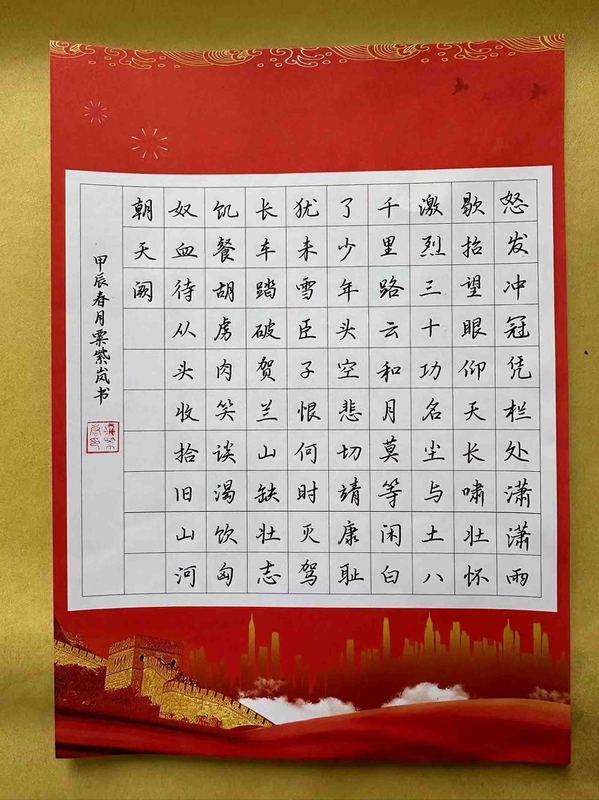 怒发冲冠凭栏处潇潇雨
歇抬望眼仰天长啸壮怀
激烈三十功名尘与土八
千里路云和月莫等闲白
了少年头空悲切靖康耻
犹未雪臣子恨何时灭驾
长车踏破贺兰山缺壮志
饥餐胡虏肉笑谈渴饮匈
奴血待从头收拾旧山河
朝天阙
甲辰春月粟紫岚书